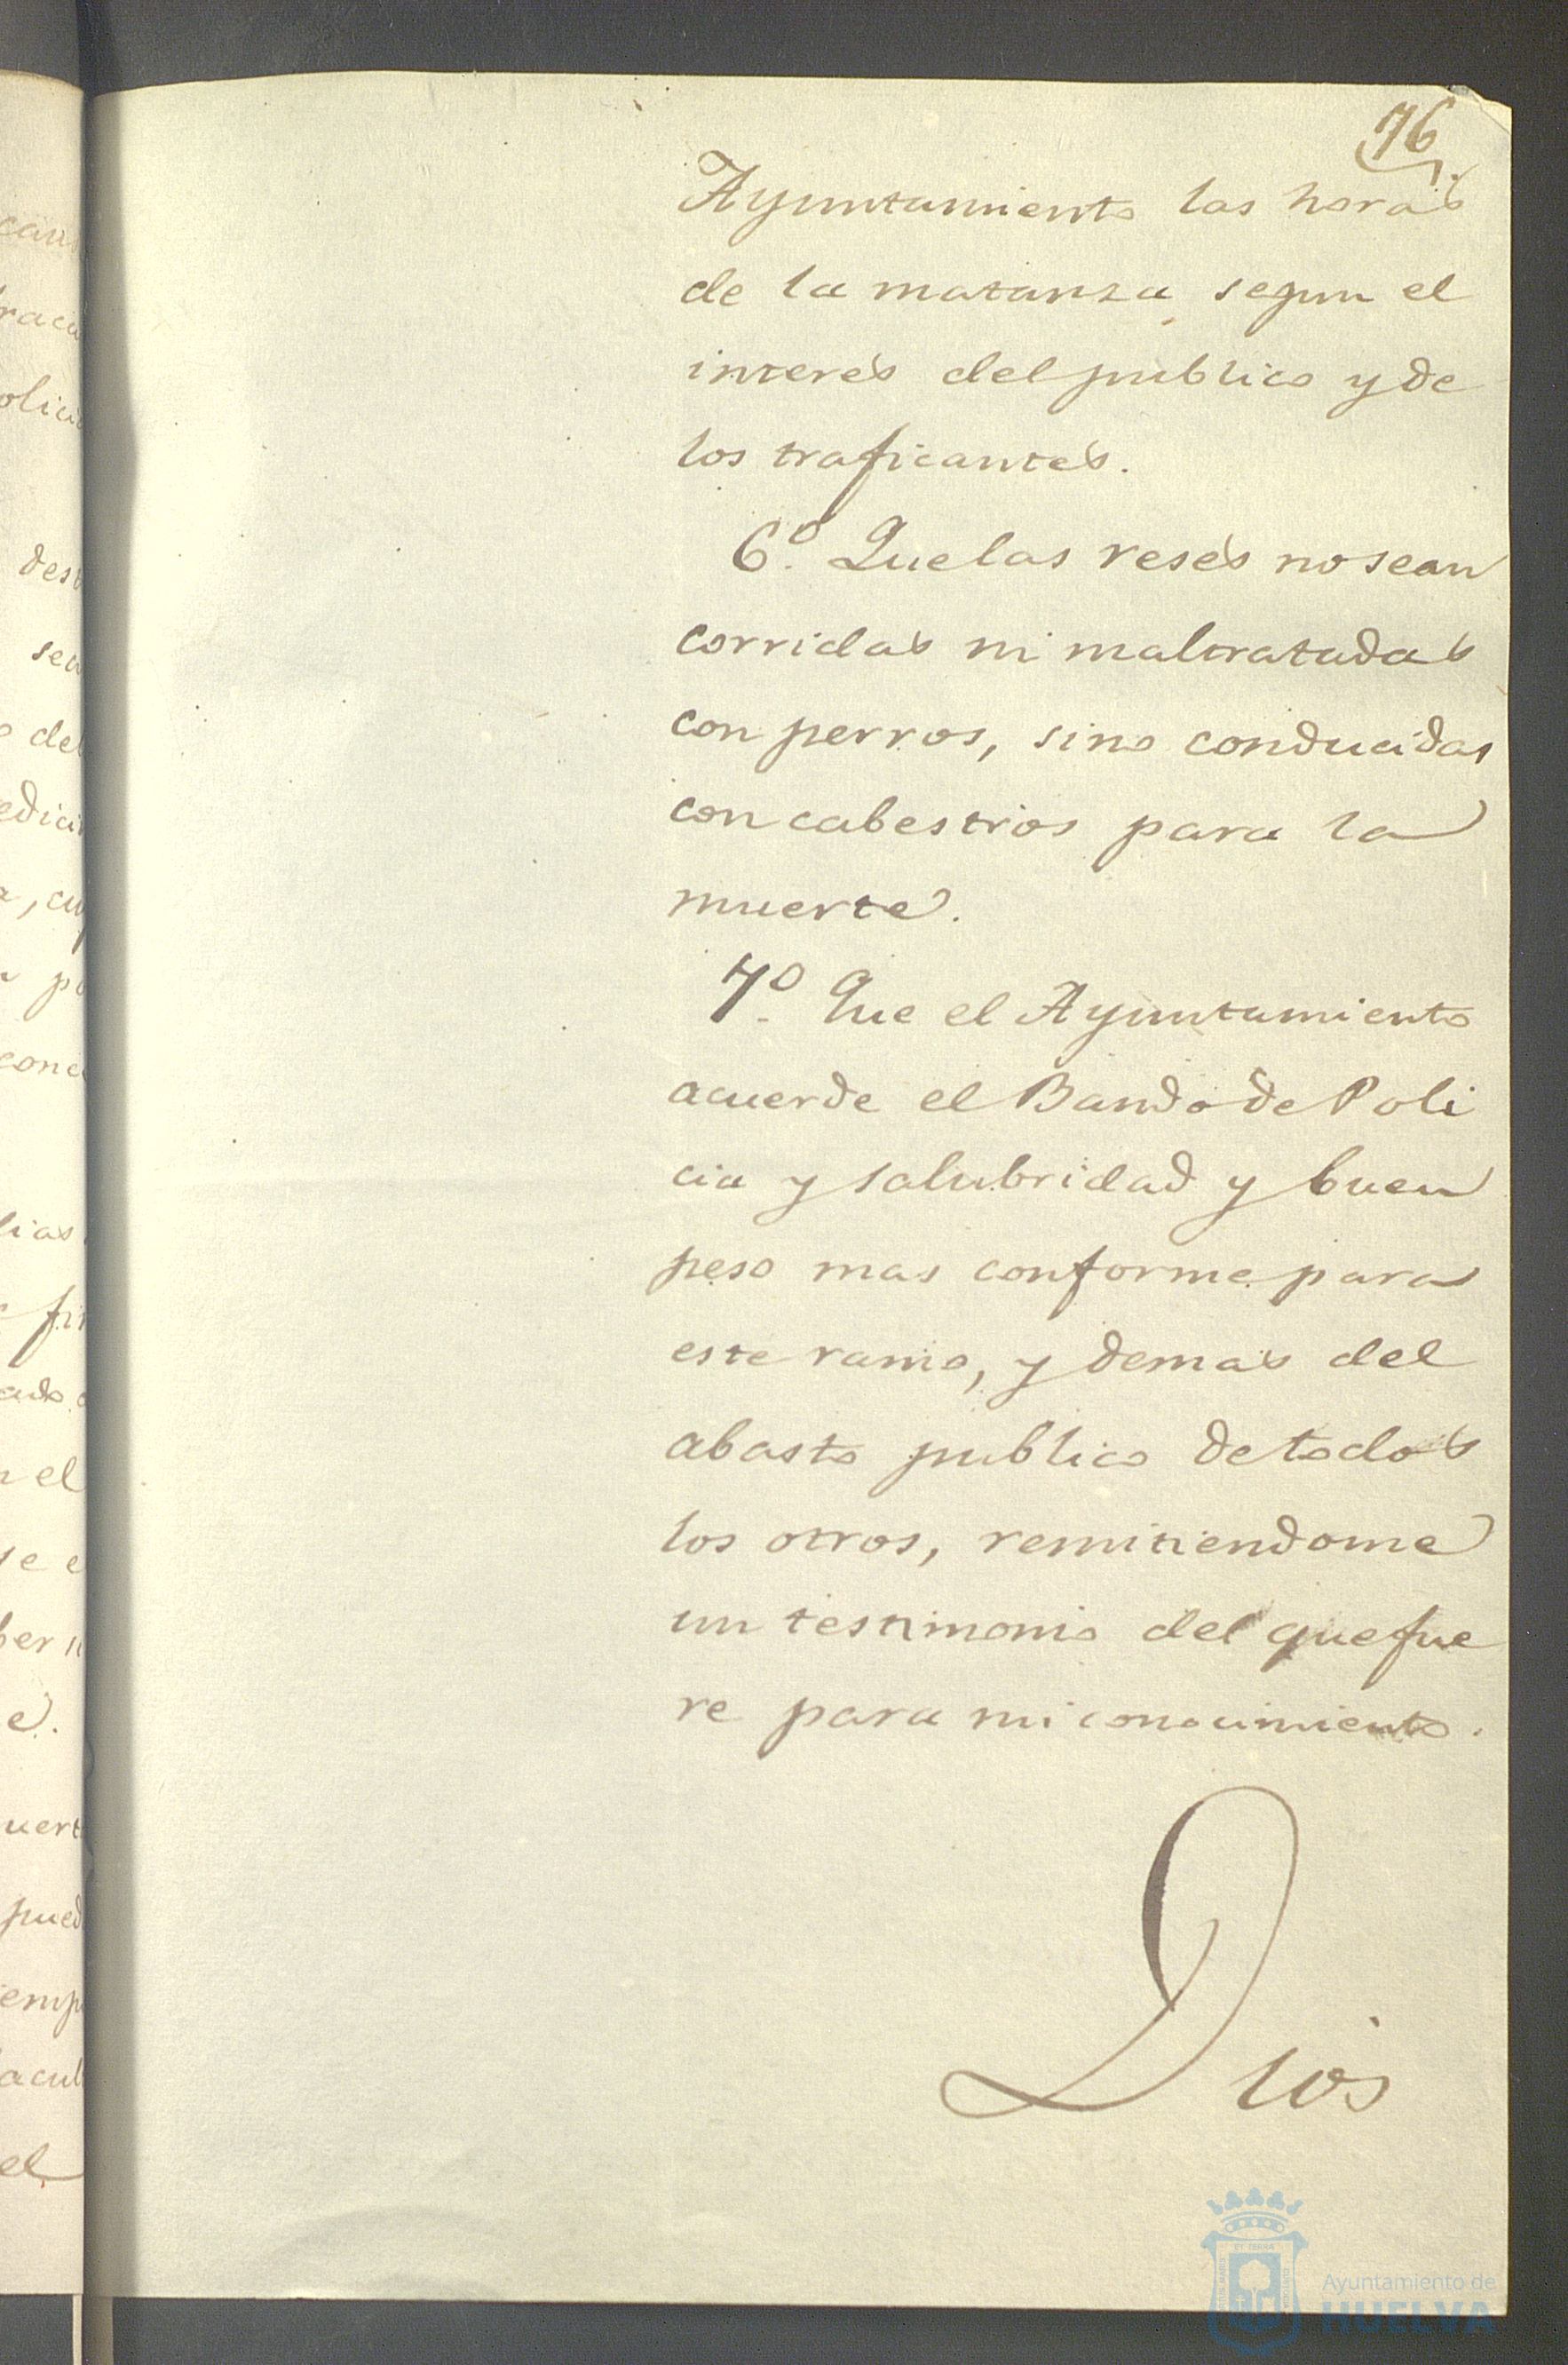 76
Ayuntamiento las horas
de la matanza segun el
interes del publico y de
los traficantes.
6º. Que las reses no sean
corridas ni maltratadas
con perros, sino conducidas
con cabestros para la
muerte.
7º. Que el Ayuntamiento
acuerde el Bando de Poli
cia y salubridad y buen
peso mas conforme para
este ramo, y demas del
abasto publico de todos
los otros, remitiendome
un testimonio del que fue
re para mi conocimiento.
Dios
Ayuntamiento de
HUELVA